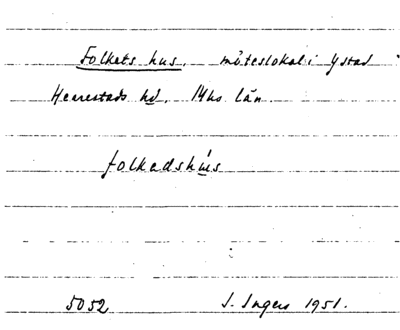 Folkets hus, möteslokal i Ystad
Herrestads hd. Mhs län.
folkedshús
5052 I. Ingers 1951.